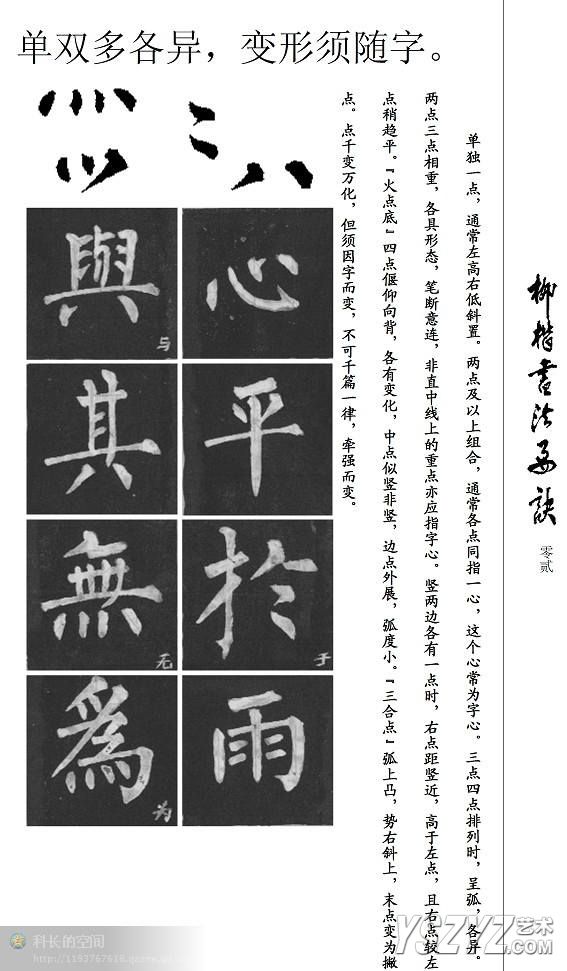 单双多各异，变形须随字。
柳楷書法要訣
零贰
单独一点，通常左高右低斜置。两点及以上组合，通常各点同指一心，这个心常为字心。三点四点排列时，呈弧，各异。
两点三点相重，各具形态，笔断意连，非直中线上的重点亦应指字心。竖两边各有一点时，右点距竖近，高于左点，且右点较左
点稍趋平。『火点底』四点偃仰向背，各有变化，中点似竖非竖，边点外展，弧度小。『三合点』弧上凸，势右斜上，末点变为撇
点。点千变万化，但须因字而变，不可千篇一律，牵强而变。
心
平
於 于
雨
與 与
其
無 无
爲 为
科长的空间
YSZYZ 艺术